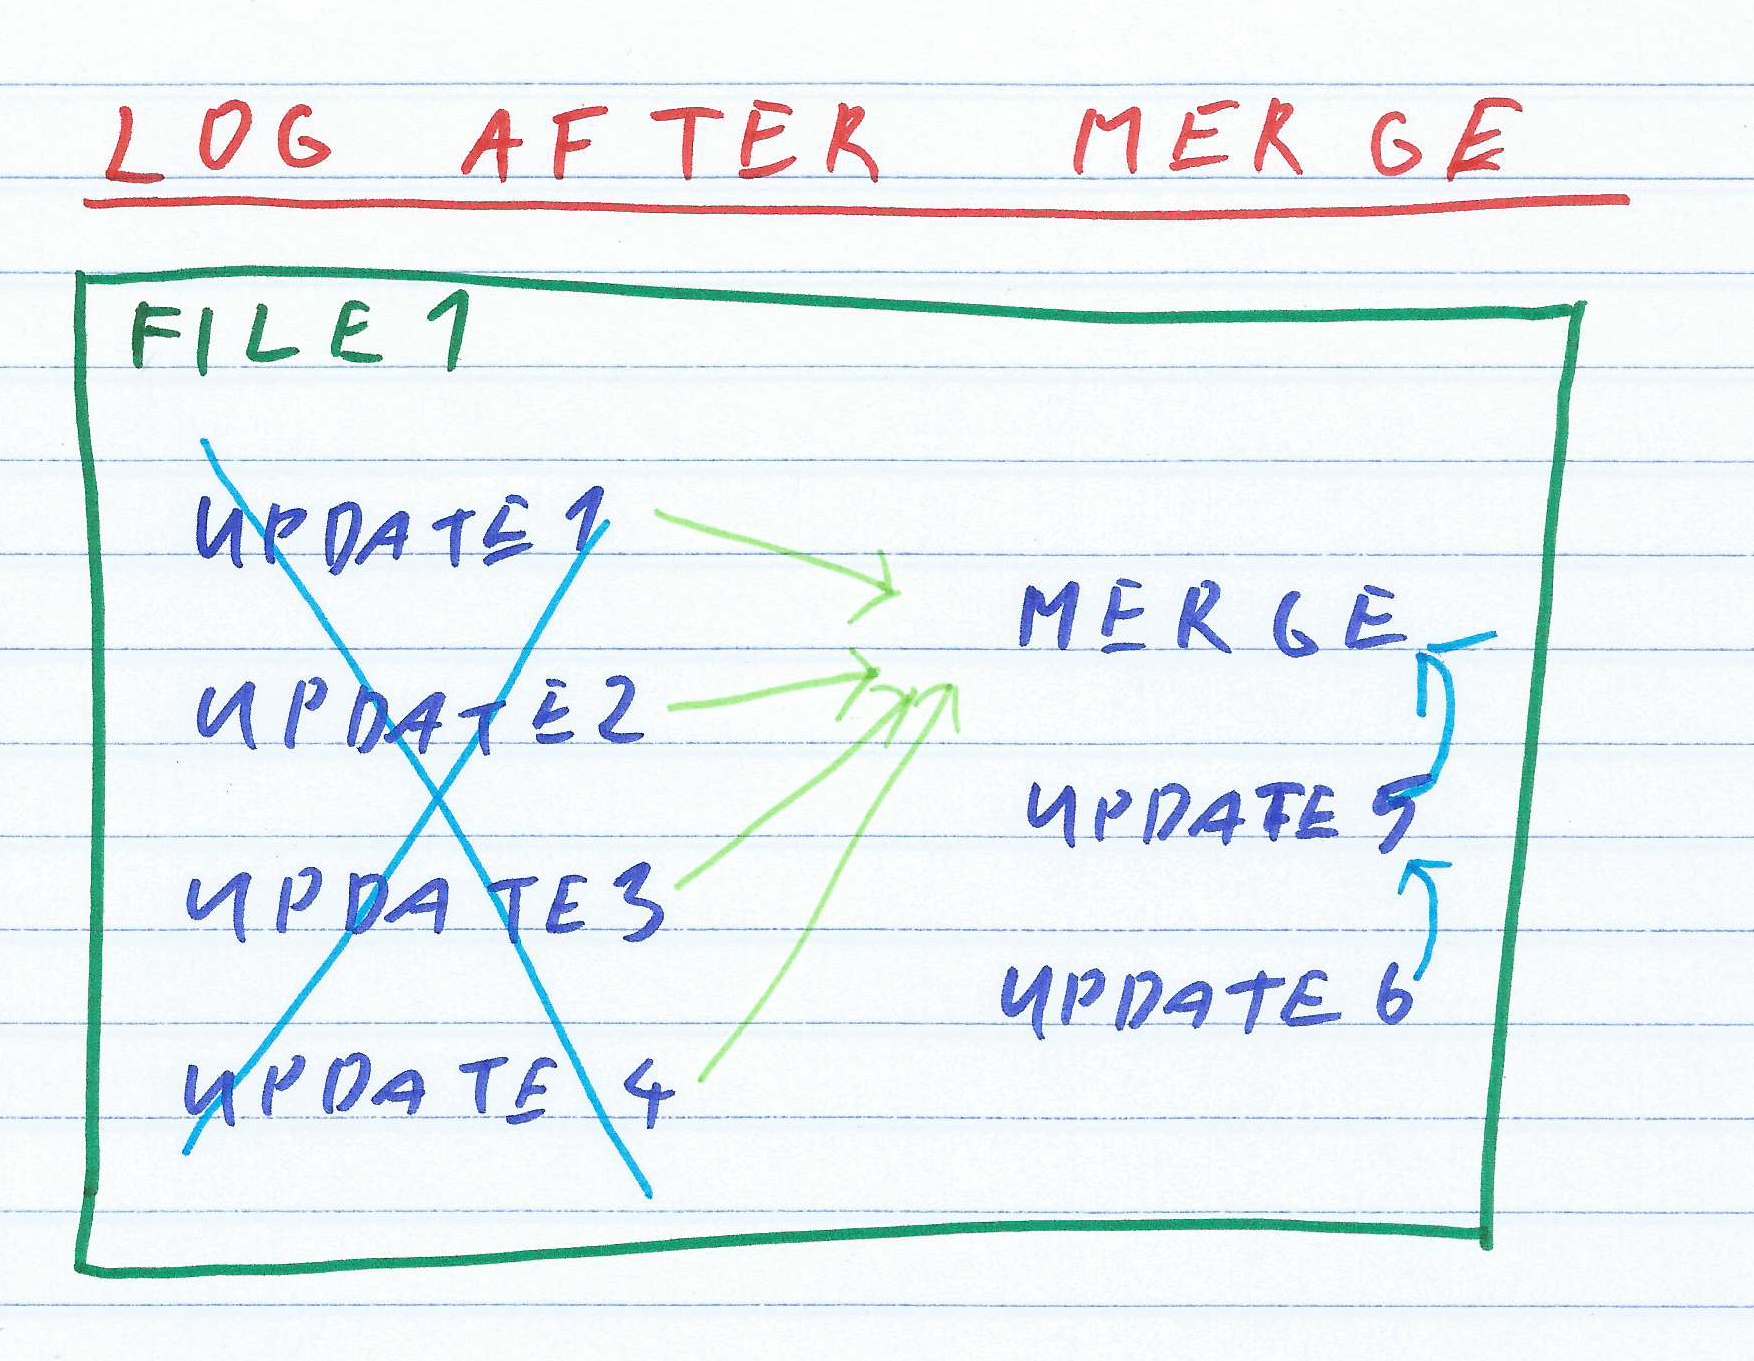 LOG AFTER MERGE
FILE 1
UPDATE 1
UPDATE 2
UPDATE 3
UPDATE 4
MERGE
UPDATE 5
UPDATE 6